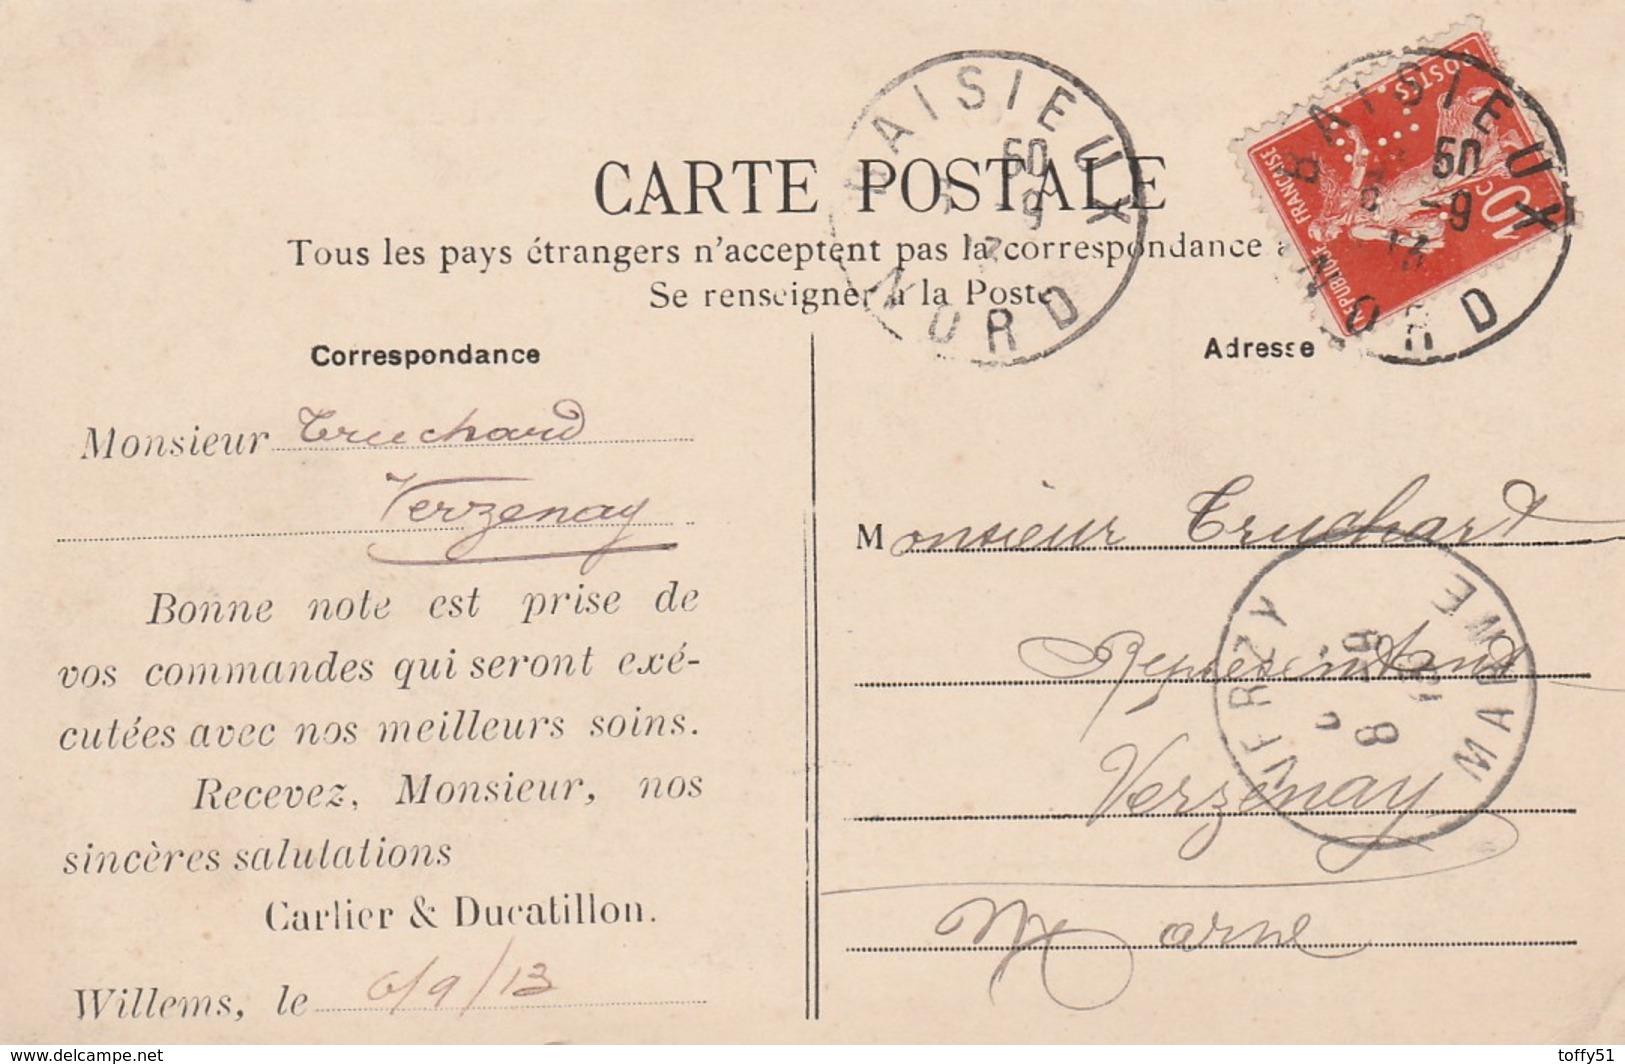 CARTE POSTALE
Tous les pays étrangers n'acceptent pas la correspondance
Se renseigner à la Poste
BAISIEUX
NORD
BAISIEUX
NORD
POSTES
RÉPUBLIQUE FRANÇAISE
10 c
Correspondance
Adresse
Monsieur Truchard
Verzenay
Bonne note est prise de
vos commandes qui seront exé-
cutées avec nos meilleurs soins.
Recevez, Monsieur, nos
sincères salutations
Carlier & Ducatillon.
Willems, le 6/9/13
Monsieur Truchart
Représentant
Verzenay
Marne
VERZY
MARNE
www.delcampe.net
toffy51